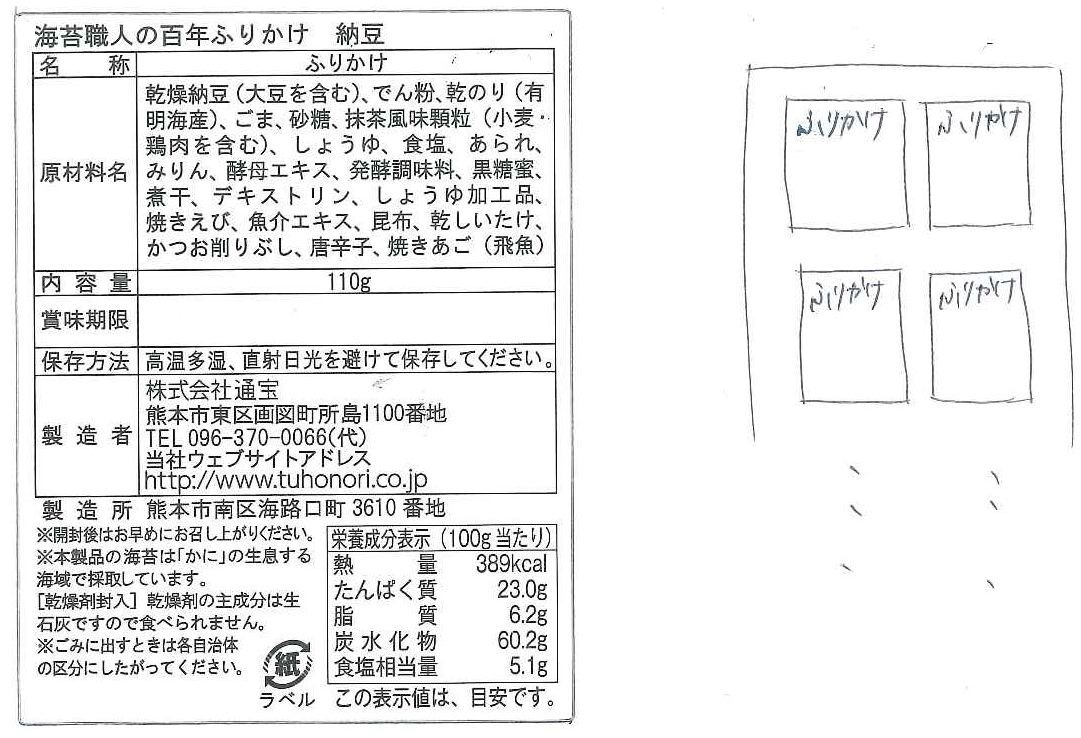 海苔職人の百年ふりかけ　納豆
名称　ふりかけ
原材料名
乾燥納豆（大豆を含む）、でん粉、乾のり（有
明海産）、ごま、砂糖、抹茶風味顆粒（小麦・
鶏肉を含む）、しょうゆ、食塩、あられ、
みりん、酵母エキス、発酵調味料、黒糖蜜、
煮干、デキストリン、しょうゆ加工品、
焼きえび、魚介エキス、昆布、乾しいたけ、
かつお削りぶし、唐辛子、焼きあご（飛魚）
内容量　110g
賞味期限
保存方法　高温多湿、直射日光を避けて保存してください。
製造者
株式会社通宝
熊本市東区画図町所島1100番地
TEL 096-370-0066(代)
当社ウェブサイトアドレス
http://www.tuhonori.co.jp
製造所 熊本市南区海路口町 3610 番地
※開封後はお早めにお召し上がりください。
※本製品の海苔は「かに」の生息する
海域で採取しています。
［乾燥剤封入］乾燥剤の主成分は生
石灰ですので食べられません。
※ごみに出すときは各自治体
の区分にしたがってください。
紙
ラベル
栄養成分表示（100g当たり）
熱量　389kcal
たんぱく質　23.0g
脂質　6.2g
炭水化物　60.2g
食塩相当量　5.1g
この表示値は、目安です。
ふりかけ　ふりかけ
ふりかけ　ふりかけ